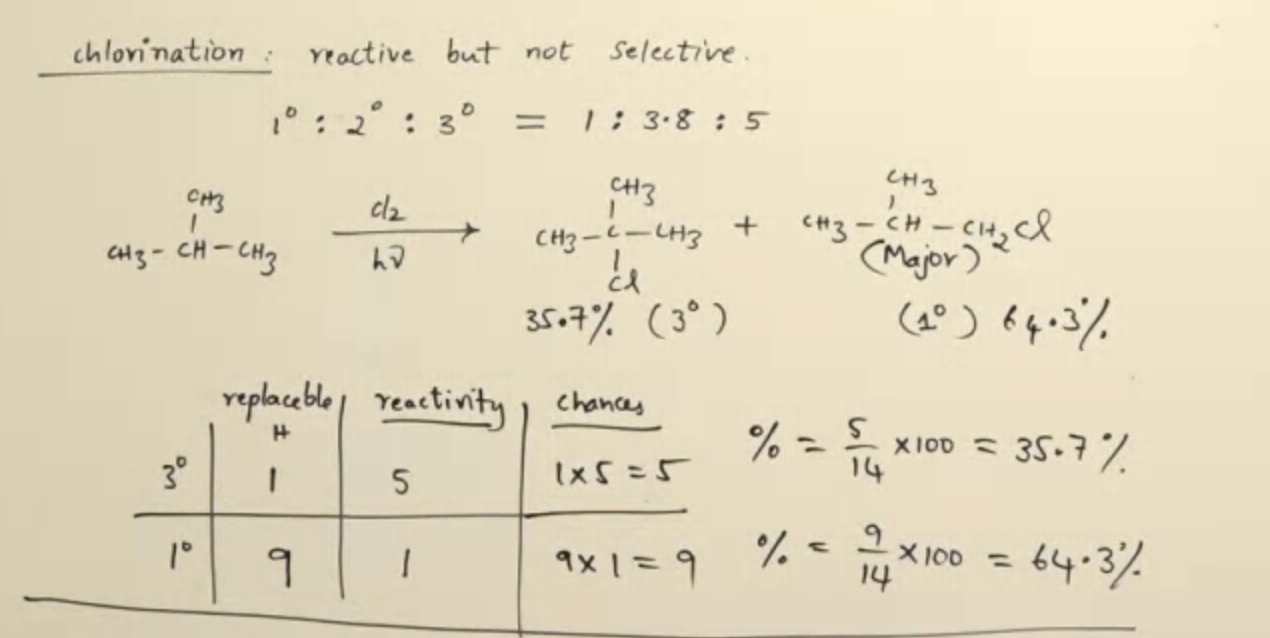 chlorination : reactive but not selective.
1° : 2° : 3° = 1 : 3.8 : 5
CH3
CH3 - CH - CH3
Cl2
hν
CH3
CH3 - C - CH3
Cl
35.7% (3°)
+
CH3
CH3 - CH - CH2Cl
(Major)
(1°) 64.3%
replaceble H | reactivity | chances
3° | 1 | 5 | 1x5 = 5
% = 5/14 x100 = 35.7%
1° | 9 | 1 | 9x1 = 9
% = 9/14 x100 = 64.3%